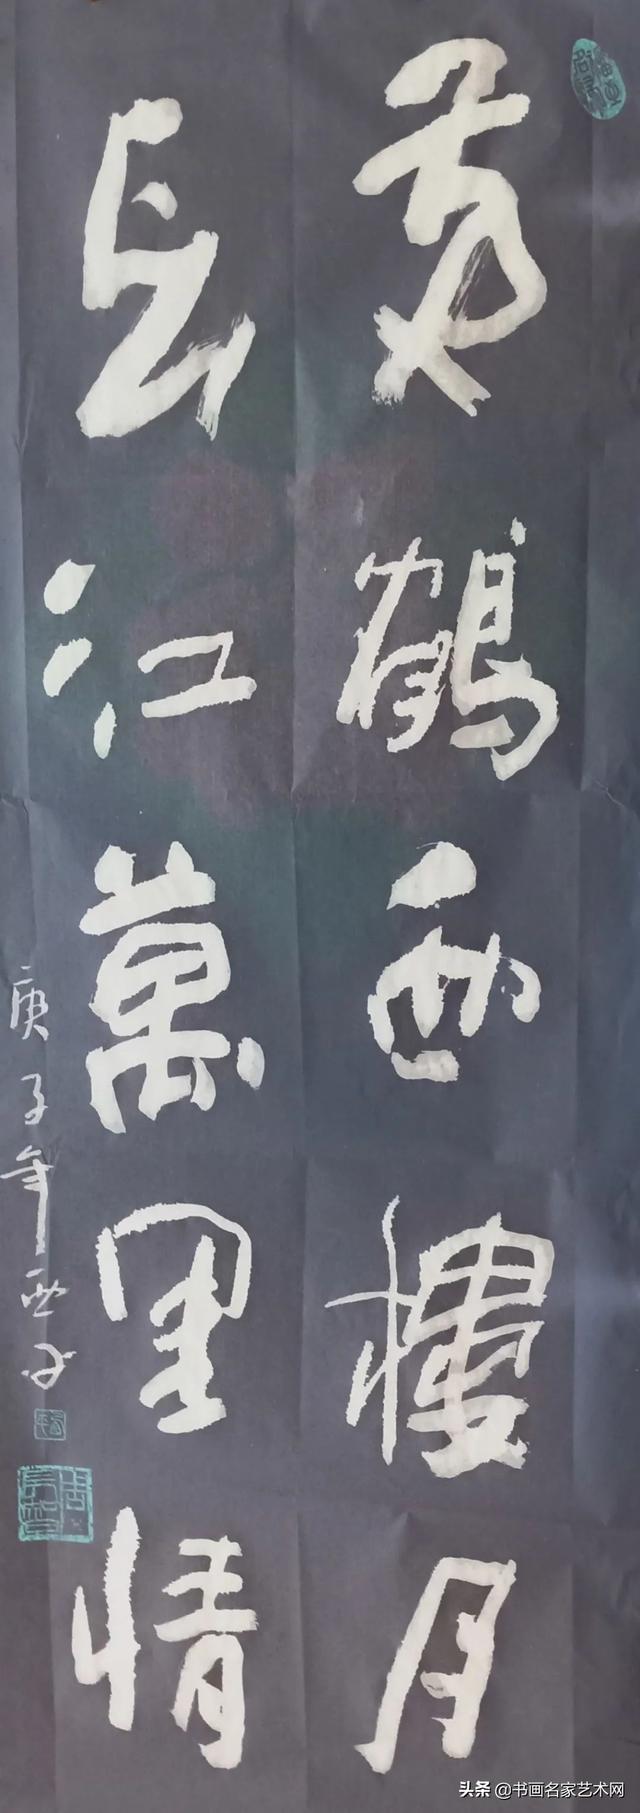 黄鹤西樓月
長江萬里情
庚子年西子
头条@书画名家艺术网